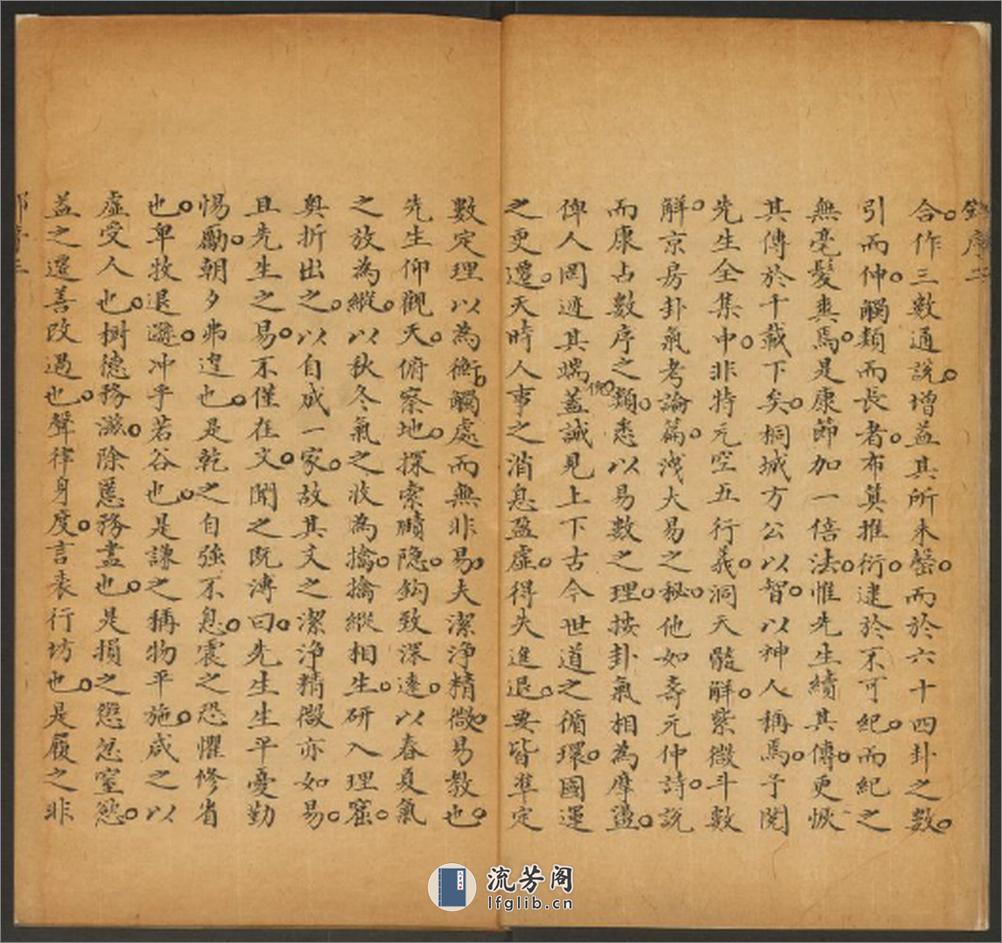 序二
合作三數通說增益其所未罄而於六十四卦之數
引而伸觸類而長者布算推衍逮於不可紀而紀之
無毫髮爽焉是康節加一倍法惟先生續其傳更恢
其傳於千載下矣桐城方公以智以神人稱焉予閱
先生全集中非特元空五行義洞天髓解紫微斗數
解京房卦氣考論篇洩大易之秘他如壽元仲詩說
而康占數序之類悉以易數之理按卦氣相為摩盪
俾人罔迹其端蓋誠見上下古今世道之循環國運
之更遷天時人事之消息盈虛得失進退要皆準定
數定理以為衡觸處而無非易夫潔淨精微易教也
先生仰觀天俯察地探索賾隱鈎致深遠以春夏氣
之放為縱以秋冬氣之收為擒擒縱相生研入理窟
奧折出之以自成一家故其文之潔淨精微亦如易
且先生之易不僅在文聞之既溥曰先生生平憂勤
惕勵朝夕弗遑也是乾之自強不息震之恐懼修省
也卑牧退遜冲乎若谷也是謙之稱物平施咸之以
虛受人也樹德務滋除慝務盡也是損之懲忿窒慾
益之遷善改過也聲律身度言表行坊也是履之非
流芳阁
lfglib.cn